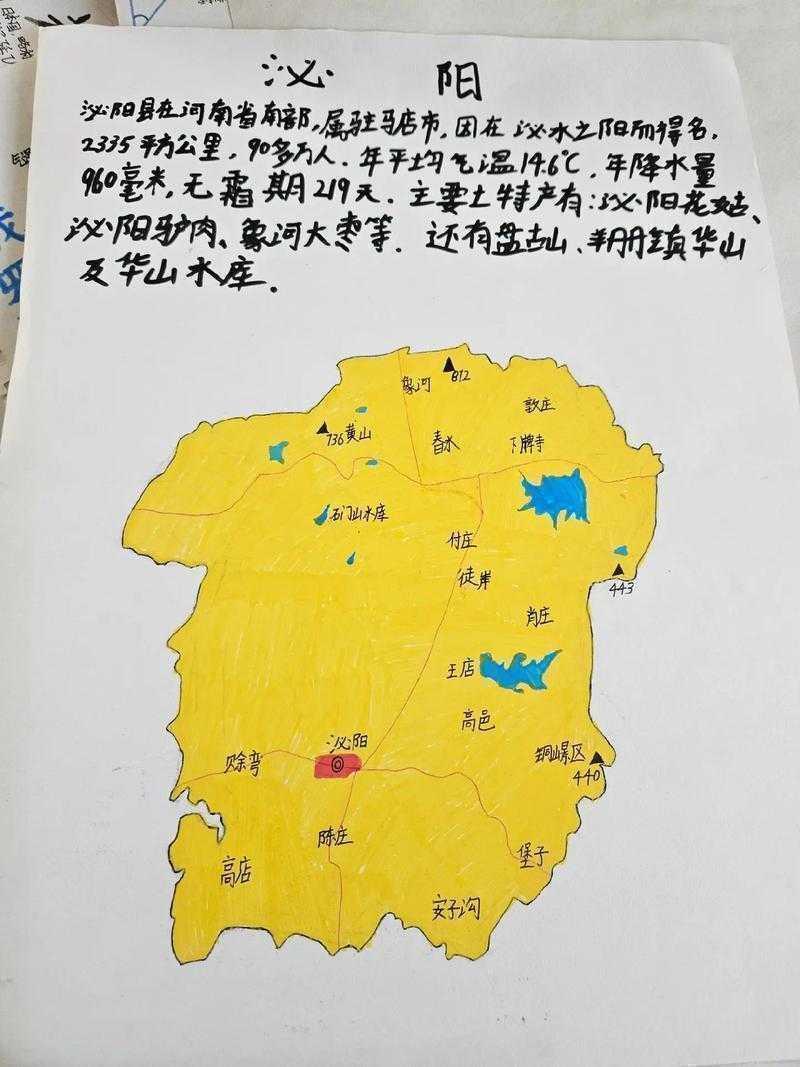 泌 阳
泌阳县在河南省南部,属驻马店市,因在泌水之阳而得名.
2335平方公里,90多万人.年平均气温14.6℃.年降水量
960毫米,无霜期219天.主要土特产有:泌阳花菇、
泌阳驴肉、象河大枣等.还有盘古山、
华山
及华山水库.
象河
812
敦庄
736 黄山
春水
下牌寺
石门山水库
付庄
443
肖庄
王店
高邑
泌阳
赊弯
景区
440
陈庄
堡子
高店
安子沟